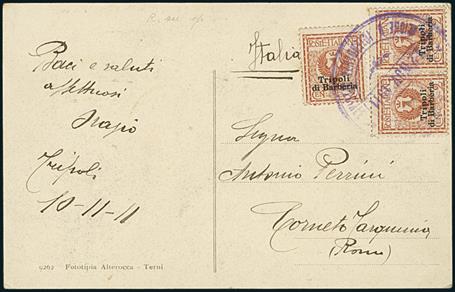 Italia
Baci e saluti
affettuosi
Tripoli
10-11-11
POSTE ITALIANE
Tripoli
di Barberia
Tripoli
di Barberia
Tripoli
di Barberia
Signa
Antonio Perrini
Corneto Tarquinia
(Roma)
9262 Fototipia Alterocca - Terni